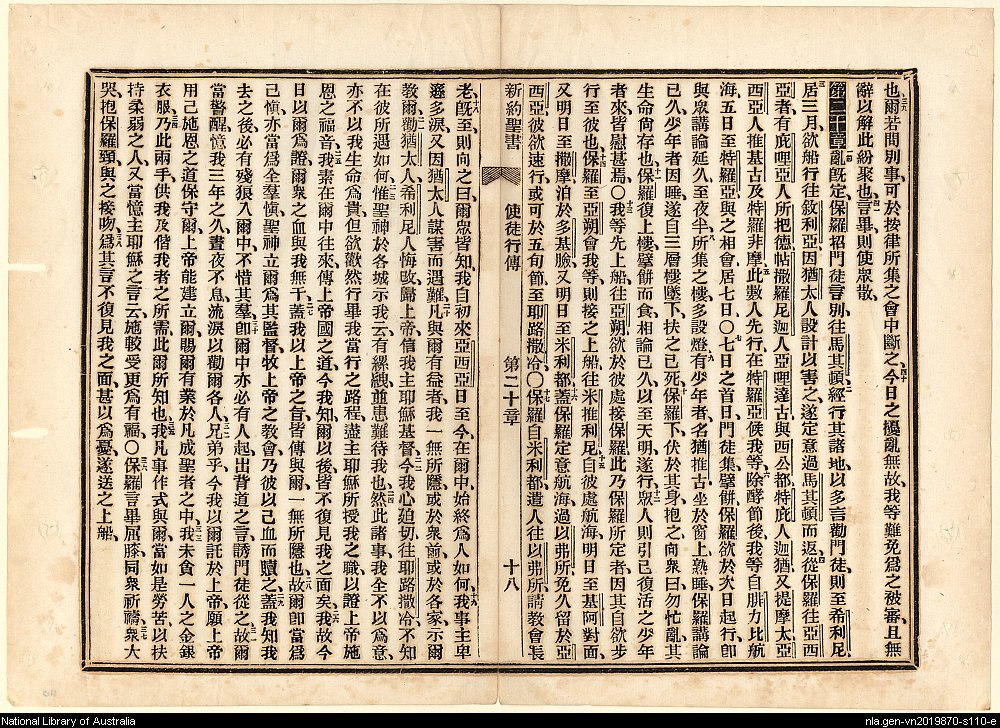 也爾若問別事可於按律所集之會中斷之今日之擾亂無故我等難免爲之被審且無
辭以解此紛聚也言畢則使衆散
第二十章亂旣定保羅招門徒言別往馬其頓經行其諸地以多言勸門徒則至希利尼
居三月欲船行往敘利亞因猶太人設計以害之遂定意過馬其頓而返從保羅往亞西
亞者有庇哩亞人所把德帖撒羅尼迦人亞哩達古與西公都特庇人迦猶又提摩太亞
西亞人推基古及特羅非摩此數人先行在特羅亞俟我等除酵節後我等自腓力比航
海五日至特羅亞與之相會居七日〇七日之首日門徒集擘餅保羅欲於次日起行卽
與衆講論延久至夜半所集之樓多設燈有少年者名猶推古坐於窗上熟睡保羅講論
已久少年者因睡遂自三層樓墜下扶之已死保羅下伏於其身抱之向衆曰勿忙亂其
生命尙存也保羅復上樓擘餅而食相論已久以至天明遂行衆人則引已復活之少年
者來皆慰甚焉〇我等先上船往亞朔欲於彼處接保羅此乃保羅所定者因其自欲步
行至彼也保羅至亞朔會我等則接之上船往米推利尼自彼處航海明日至基阿對面
又明日至撒摩泊於多基臉又明日至米利都蓋保羅定意航海過以弗所免久留於亞
西亞彼欲速行或可於五旬節至耶路撒冷〇保羅自米利都遣人往以弗所請教會長
新約聖書 使徒行傳 第二十章 十八
老旣至則向之曰爾衆皆知我自初來亞西亞日至今在爾中始終爲人如何我事主卑
遜多淚又因猶太人謀害而遇難凡與爾有益者我一無所隱或於衆前或於各家示爾
教爾勸猶太人希利尼人悔改歸上帝信我主耶穌基督今我心廹切往耶路撒冷不知
在彼所遇如何惟聖神於各城示我云有縲絏並患難待我也然此諸事我全不以爲意
亦不以我生命爲貴但欲歡然行畢我當行之路程盡主耶穌所授我之職以證上帝施
恩之福音我素在爾中往來傳上帝國之道今我知爾以後皆不復見我之面矣我故今
日以爾爲證爾衆之血與我無干蓋我以上帝之旨皆傳與爾一無所隱也故爾卽當爲
己愼亦當爲全羣愼聖神立爾爲其監督牧上帝之教會乃彼以己血而贖之蓋我知我
去之後必有殘狼入爾中不惜其羣卽爾中亦必有人起出背道之言誘門徒從之故爾
當警醒憶我三年之久晝夜不息流淚以勸爾各人兄弟乎今我以爾託於上帝願上帝
用己施恩之道保守爾上帝能建立爾賜爾有業於凡成聖者之中我未貪一人之金銀
衣服乃此兩手供我及偕我者之所需此爾所知也我凡事作式與爾當如是勞苦以扶
持柔弱之人又當憶主耶穌之言云施較受更爲有福〇保羅言畢屈膝同衆祈禱衆大
哭抱保羅頸與之接吻爲其言不復見我之面甚以爲憂遂送之上船
National Library of Australia
nla.gen-vn2019870-s110-e